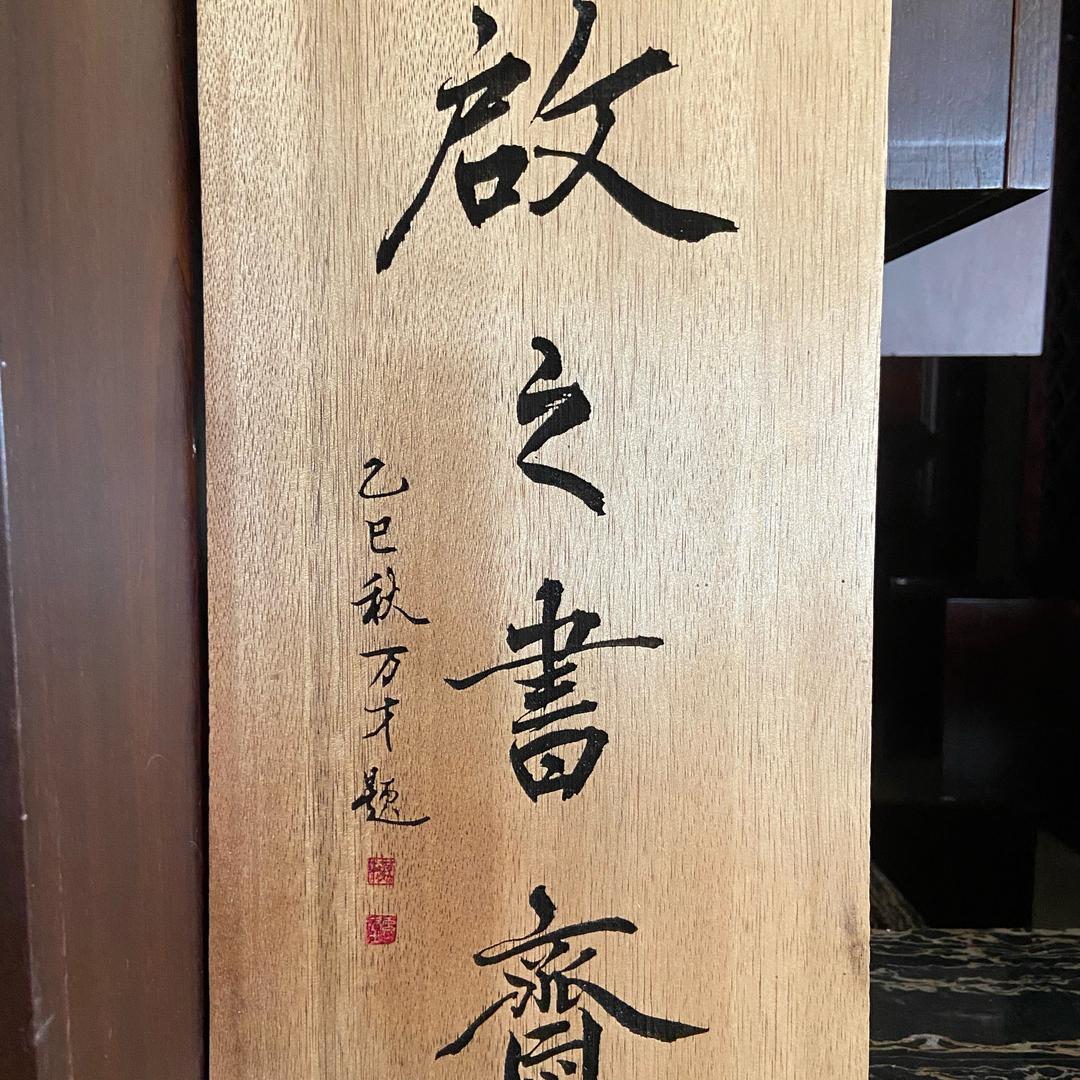 啟之書齋
乙巳秋万才題